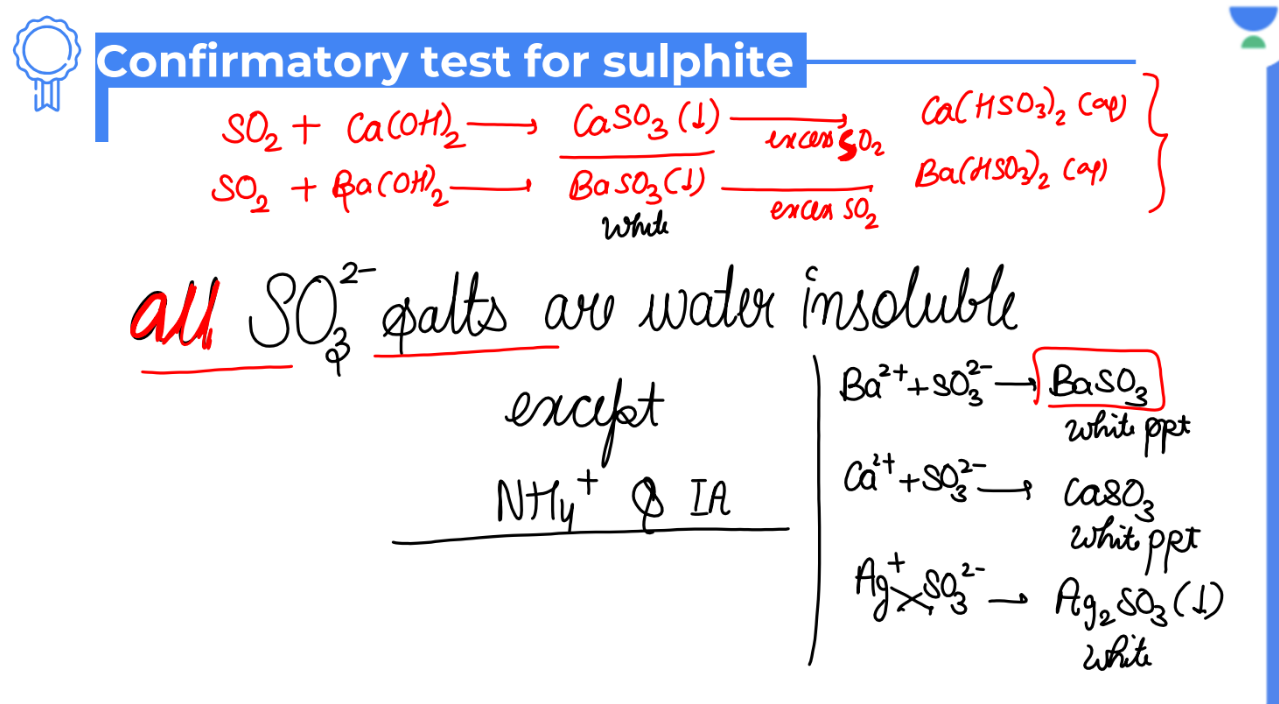 Confirmatory test for sulphite
SO₂ + Ca(OH)₂ → CaSO₃ (↓) → excess SO₂ Ca(HSO₃)₂ (aq)
SO₂ + Ba(OH)₂ → BaSO₃ (↓) → excess SO₂ Ba(HSO₃)₂ (aq)
white
all SO₃²⁻ salts are water insoluble
except
NH₄⁺ & IA
Ba²⁺ + SO₃²⁻ → BaSO₃
white ppt
Ca²⁺ + SO₃²⁻ → CaSO₃
white ppt
Ag⁺ SO₃²⁻ → Ag₂SO₃ (↓)
white